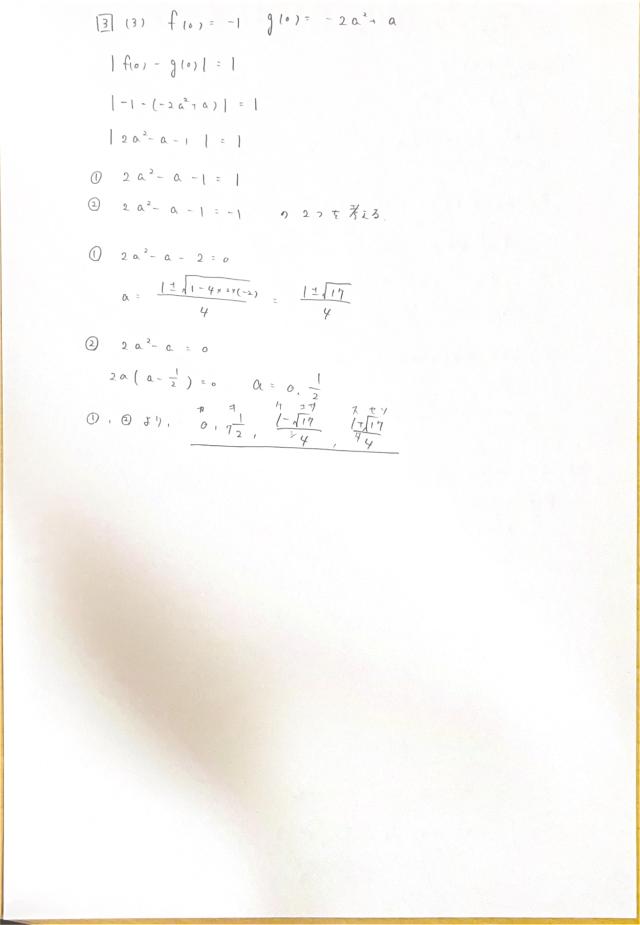 3 (3) f(0) = -1 g(0) = -2a²+a
|f(0) - g(0)| = 1
|-1-(-2a²+a)| = 1
|2a²-a-1| = 1
① 2a²-a-1 = 1
② 2a²-a-1 = -1 の2つを考える.
① 2a²-a-2 = 0
a = (1±√(1-4×2×(-2)))/4 = (1±√17)/4
② 2a²-a = 0
2a(a-1/2) = 0 a = 0, 1/2
ケ コサ ス セソ
①, ② より, 0, 1/2, (1-√17)/4, (1+√17)/4